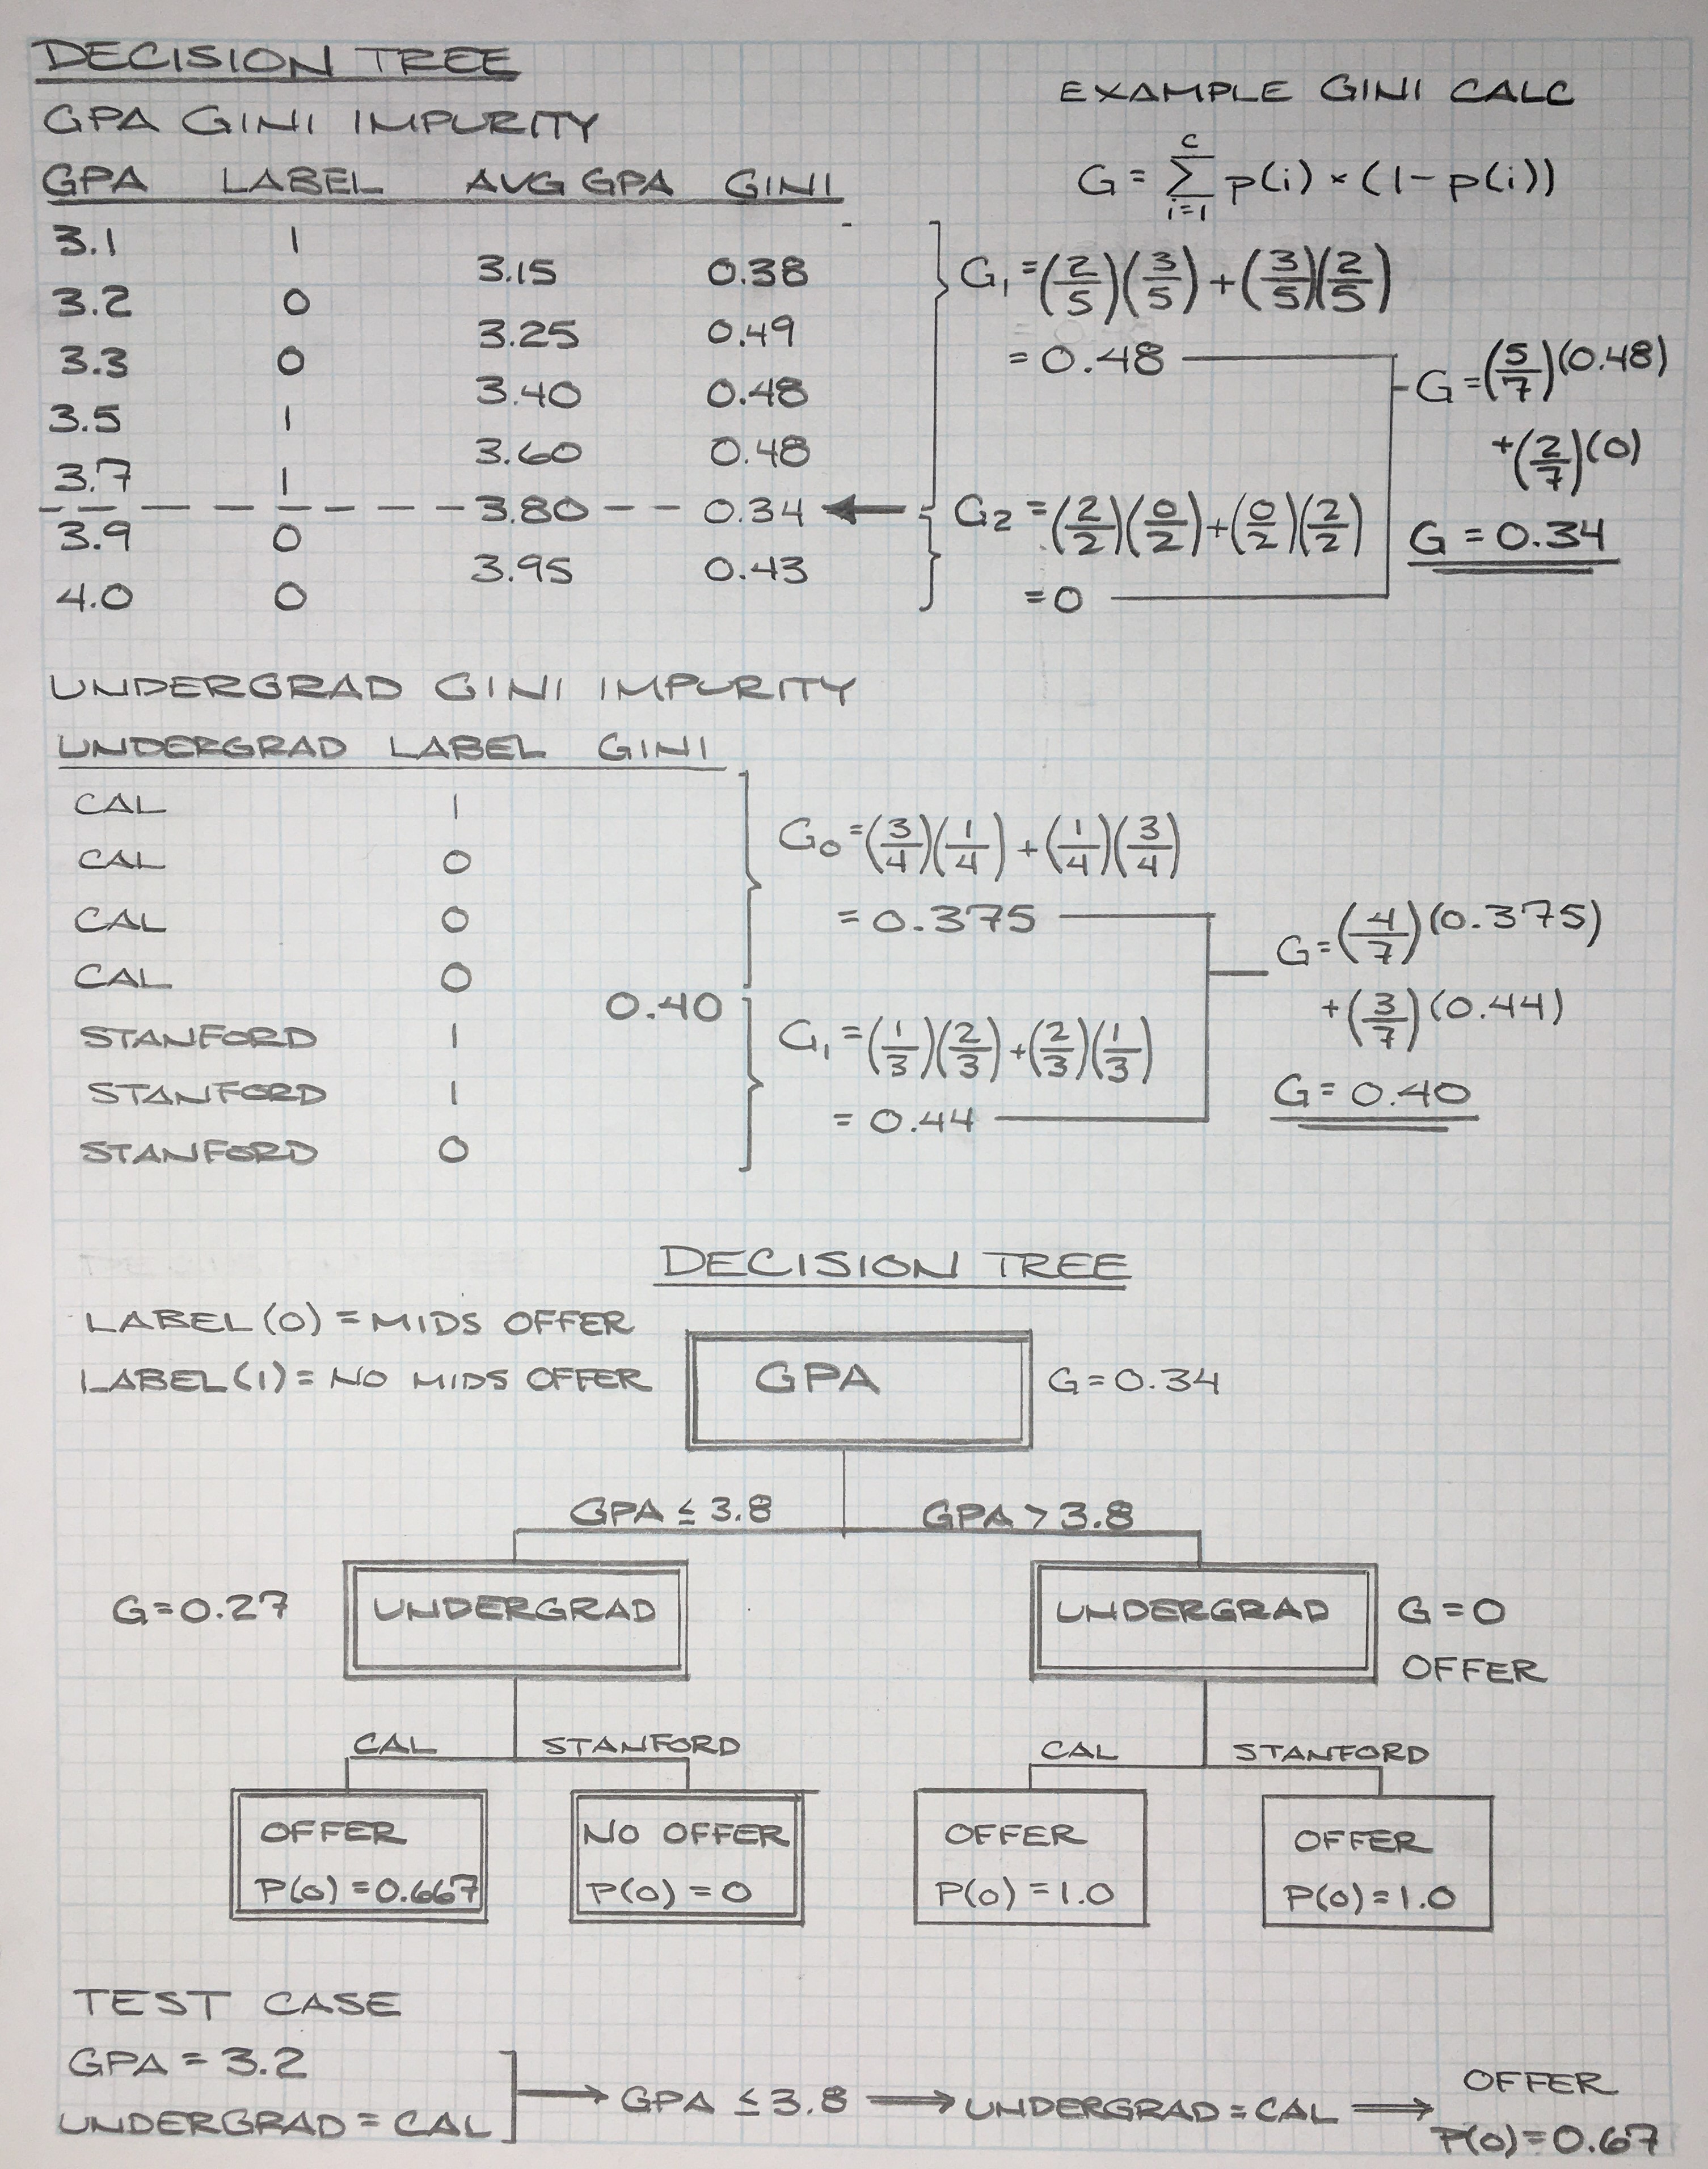 DECISION TREE
GPA GINI IMPURITY
GPA LABEL AVG GPA GINI
3.1 1
3.15 0.38
3.2 0
3.25 0.49
3.3 0
3.40 0.48
3.5 1
3.60 0.48
3.7 1
3.80 0.34
3.9 0
3.95 0.43
4.0 0
EXAMPLE GINI CALC
G = Σ_{i=1}^{C} p(i) × (1 - p(i))
G₁ = (2/5)(3/5) + (3/5)(2/5)
= 0.48
G₂ = (2/2)(0/2) + (0/2)(2/2)
= 0
G = (5/7)(0.48)
+ (2/7)(0)
G = 0.34
UNDERGRAD GINI IMPURITY
UNDERGRAD LABEL GINI
CAL 1
CAL 0
CAL 0
CAL 0
0.40
STANFORD 1
STANFORD 1
STANFORD 0
G₀ = (3/4)(1/4) + (1/4)(3/4)
= 0.375
G₁ = (1/3)(2/3) + (2/3)(1/3)
= 0.44
G = (4/7)(0.375)
+ (3/7)(0.44)
G = 0.40
DECISION TREE
LABEL(0) = MIDS OFFER
LABEL(1) = NO MIDS OFFER
GPA G = 0.34
GPA ≤ 3.8 GPA > 3.8
G = 0.27 UNDERGRAD UNDERGRAD G = 0
OFFER
CAL STANFORD CAL STANFORD
OFFER NO OFFER OFFER OFFER
P(0) = 0.667 P(0) = 0 P(0) = 1.0 P(0) = 1.0
TEST CASE
GPA = 3.2
UNDERGRAD = CAL
→ GPA ≤ 3.8 → UNDERGRAD = CAL → OFFER
P(0) = 0.67